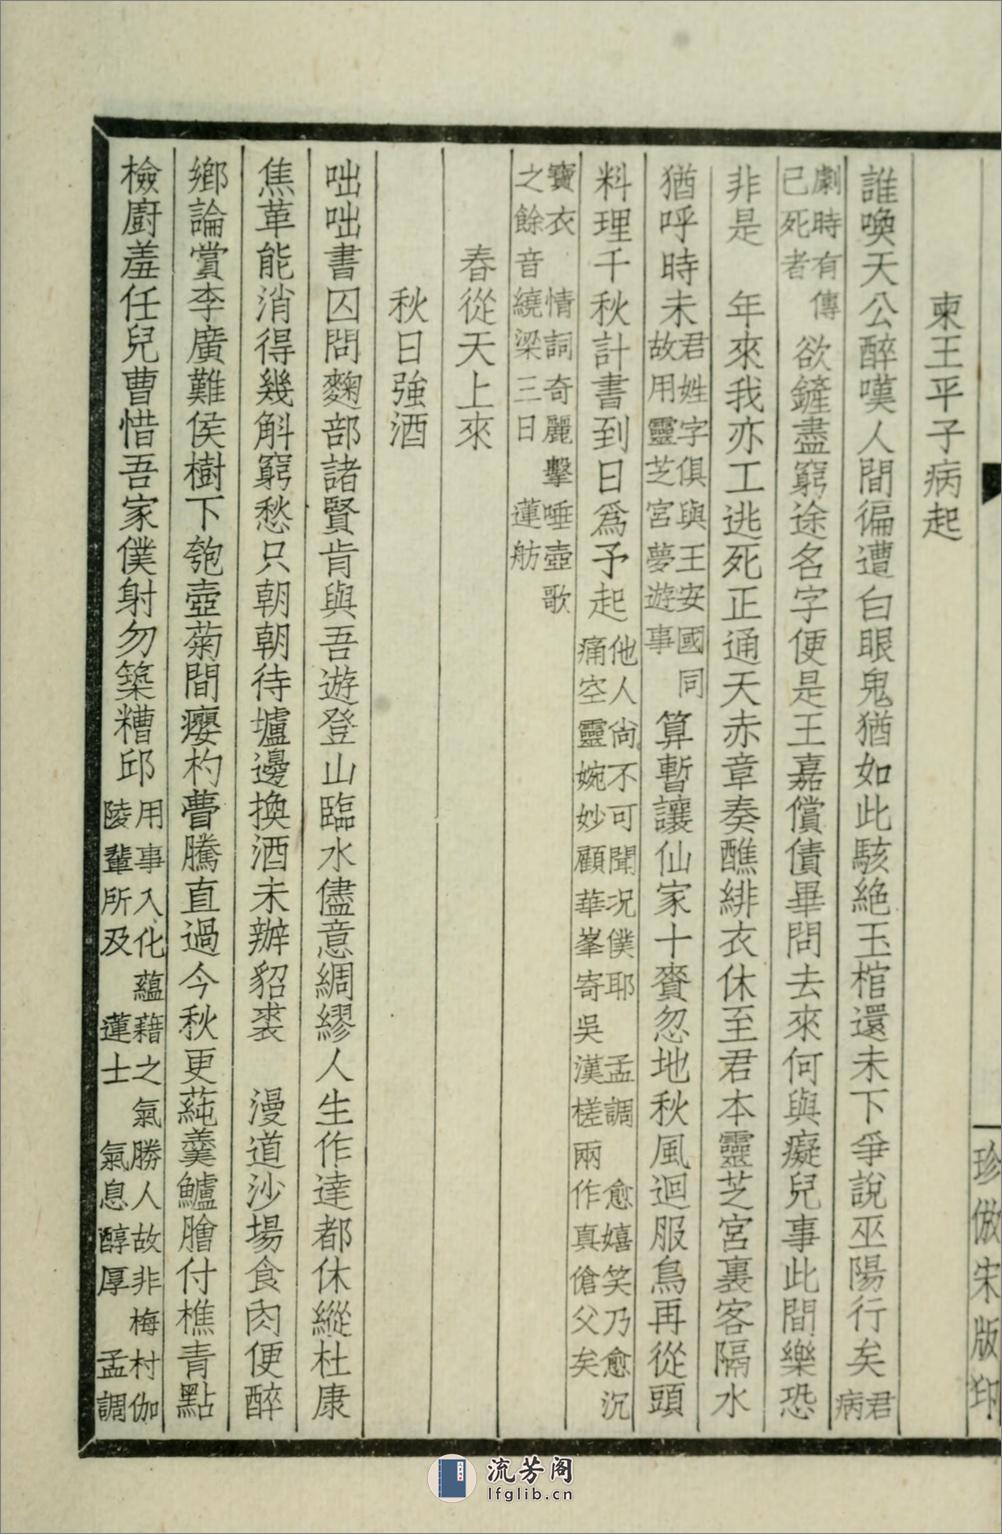 珍倣宋版印
柬王平子病起
誰喚天公醉嘆人間徧遭白眼鬼猶如此駭絕玉棺還未下爭說巫陽行矣君病
劇時有傳已死者欲鏟盡窮途名字便是王嘉償債畢問去來何與癡兒事此間樂恐
非是 年來我亦工逃死正通天赤章奏醮緋衣休至君本靈芝宮裏客隔水
猶呼時未君姓字俱與王安國同故用靈芝宮夢遊事算暫讓仙家十賚忽地秋風迴服鳥再從頭
料理千秋計書到日爲予起他人尙不可聞况僕耶 孟調 愈嬉笑乃愈沉痛空靈婉妙顧華峯寄吳漢槎兩作真傖父矣
寶衣 情詞奇麗擊唾壺歌之餘音繞梁三日 蓮舫
春從天上來
秋日強酒
咄咄書囚問麴部諸賢肯與吾遊登山臨水儘意綢繆人生作達都休縱杜康
焦革能消得幾斛窮愁只朝朝待壚邊換酒未辦貂裘 漫道沙場食肉便醉
鄉論賞李廣難侯樹下匏壺菊間癭杓瞢騰直過今秋更蒓羹鱸膾付樵青點
檢廚羞任兒曹惜吾家僕射勿築糟邱用事入化蘊藉之氣勝人故非梅村伽陵輩所及 蓮士 氣息醇厚 孟調
流芳阁
lfglib.cn